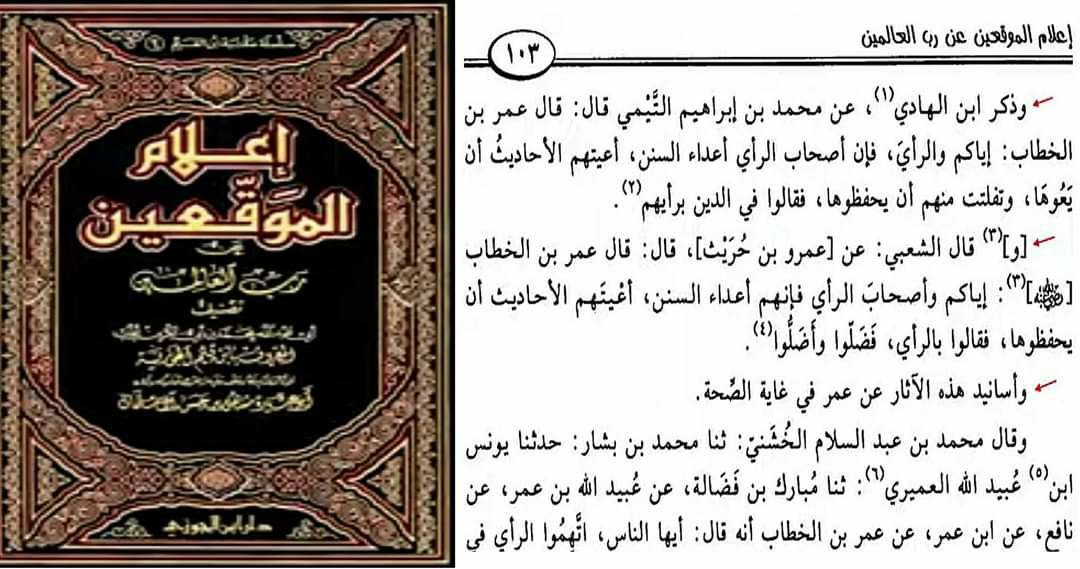 إعلام
الموقعين
عن
رب العالمين
تصنيف
دار ابن الجوزي
إعلام الموقعين عن رب العالمين
١٠٣
وذكر ابن الهادي(١)، عن محمد بن إبراهيم التَّيْمي قال: قال عمر بن
الخطاب: إياكم والرأيَ، فإن أصحاب الرأي أعداء السنن، أعيتهم الأحاديثُ أن
يَعُوهَا، وتفلتت منهم أن يحفظوها، فقالوا في الدين برأيهم(٢).
[و](٣) قال الشعبي: عن [عمرو بن حُرَيْث]، قال: قال عمر بن الخطاب
[رضي الله عنه](٣): إياكم وأصحابَ الرأي فإنهم أعداء السنن، أعْيتَهم الأحاديث أن
يحفظوها، فقالوا بالرأي، فَضَلّوا وأَضَلُّوا(٤).
وأسانيد هذه الآثار عن عمر في غاية الصِّحة.
وقال محمد بن عبد السلام الخُشَنيّ: ثنا محمد بن بشار: حدثنا يونس
ابن(٥) عُبيد الله العميري(٦): ثنا مُبارك بن فَضَالة، عن عُبيد الله بن عمر، عن
نافع، عن ابن عمر، عن عمر بن الخطاب أنه قال: أيها الناس، اتَّهِمُوا الرأي في